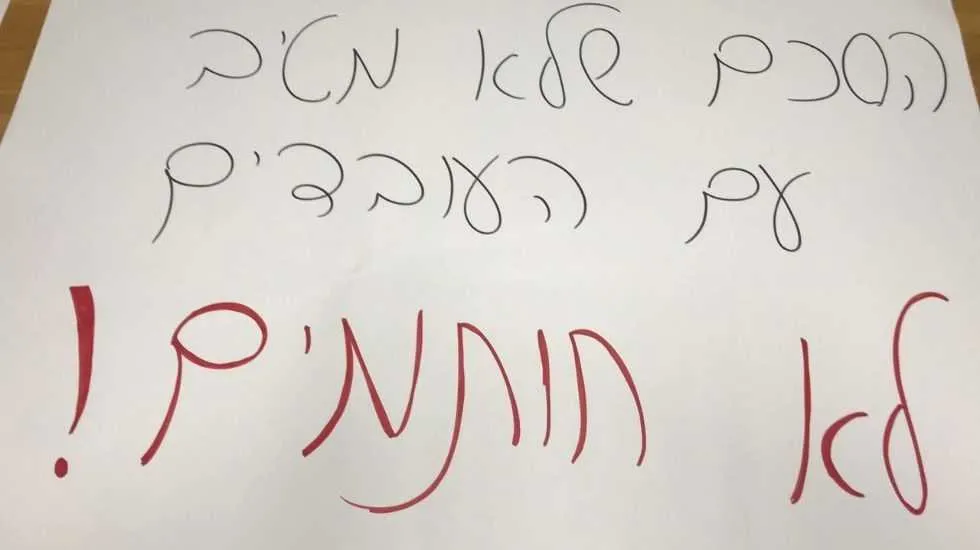 הסכם שלא מטיב
עם העובדים
לא חותמים!